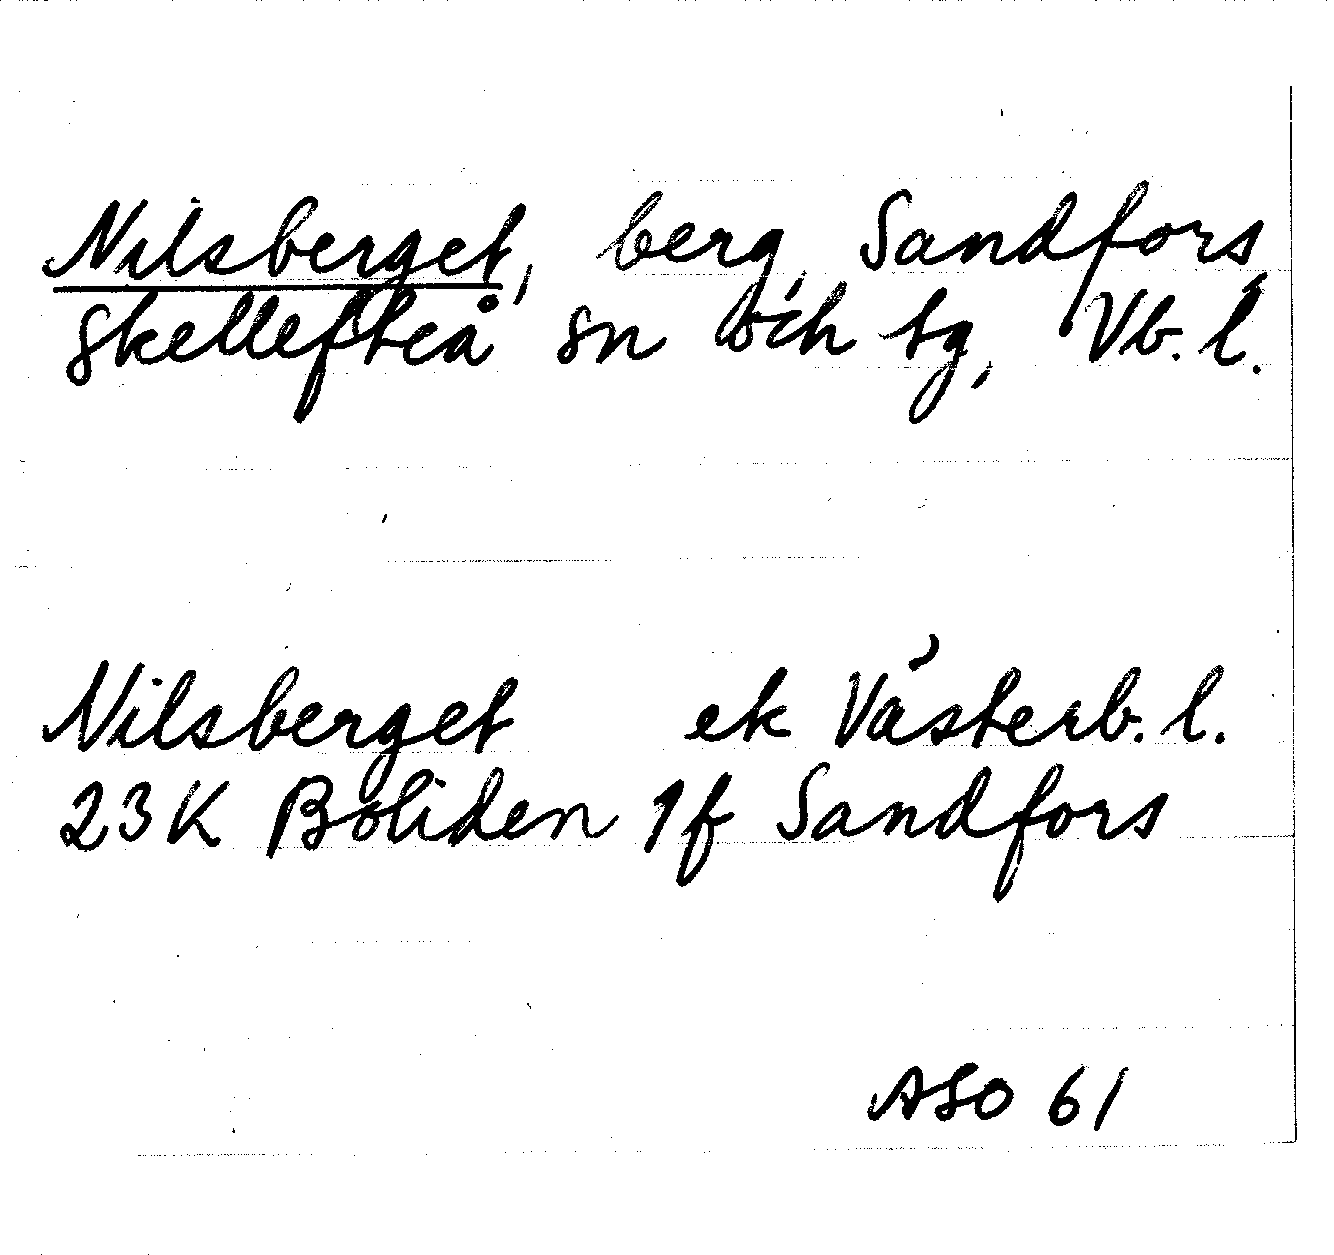 Nilsberget, berg, Sandfors,
Skellefteå sn och tg, Vb. l.
Nilsberget ek Västerb. l.
23K Boliden 1f Sandfors
ASO 61